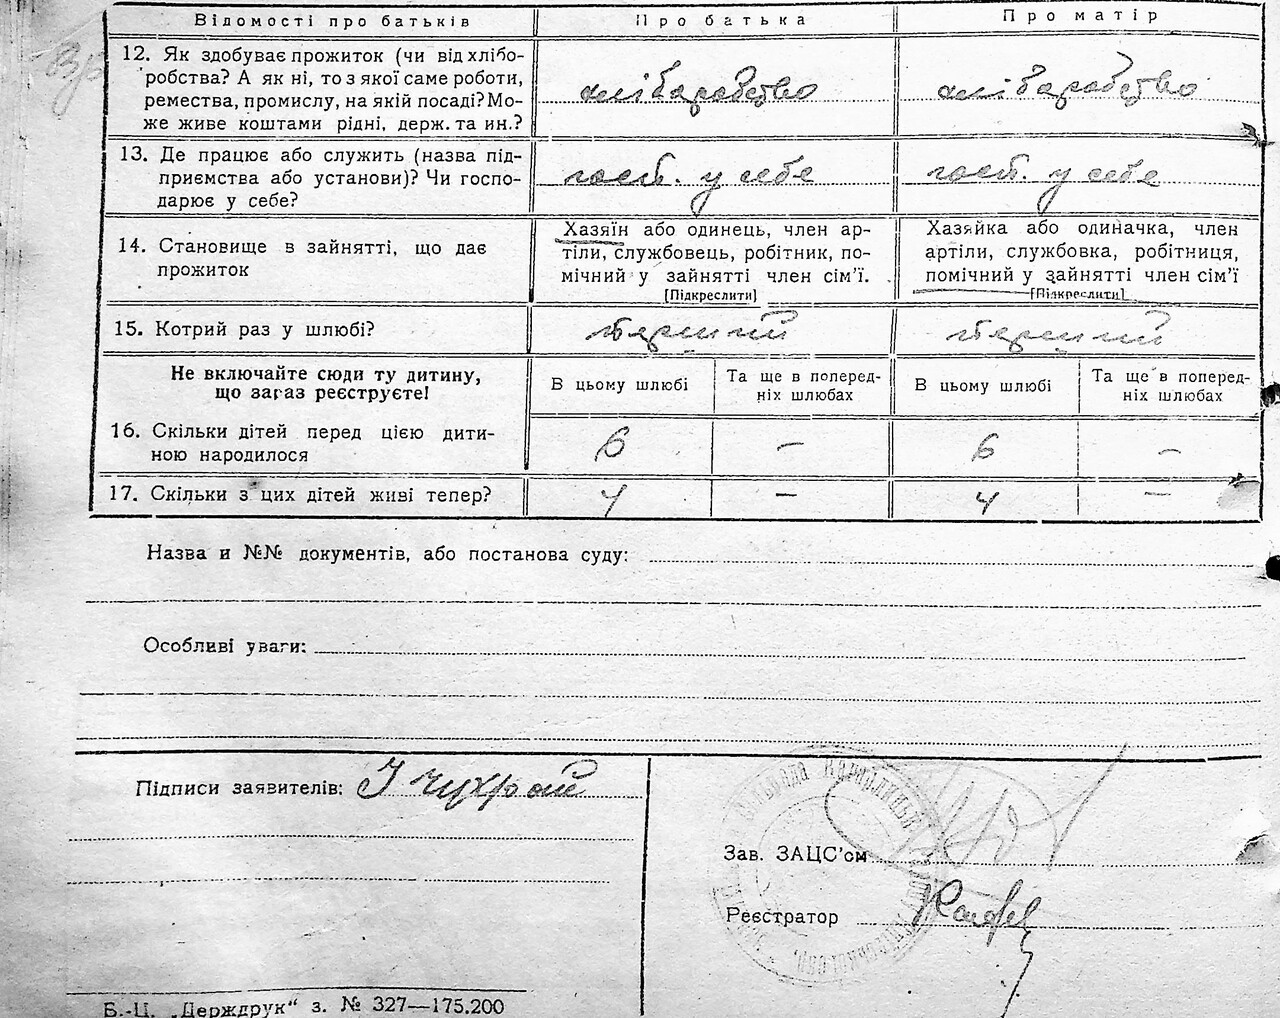 Відомості про батьків
Про батька
Про матір
12. Як здобуває прожиток (чи від хлібо-
робства? А як ні, то з якої саме роботи,
ремества, промислу, на якій посаді? Мо-
же живе коштами рідні, держ. та ин.?
хліборобство
хліборобство
13. Де працює або служить (назва під-
приємства або установи)? Чи госпо-
дарює у себе?
госп. у себе
госп. у себе
14. Становище в зайнятті, що дає
прожиток
Хазяїн або одинець, член ар-
тіли, службовець, робітник, по-
мічний у зайнятті член сім'ї.
[Підкреслити]
Хазяйка або одиначка, член
артіли, службовка, робітниця,
помічний у зайнятті член сім'ї
[Підкреслити]
15. Котрий раз у шлюбі?
перший
перший
Не включайте сюди ту дитину,
що зараз реєструєте!
В цьому шлюбі
Та ще в поперед-
ніх шлюбах
В цьому шлюбі
Та ще в поперед-
ніх шлюбах
16. Скільки дітей перед цією дити-
ною народилося
6
–
6
–
17. Скільки з цих дітей живі тепер?
4
–
4
–
Назва и №№ документів, або постанова суду:
Особливі уваги:
Підписи заявителів: І Чухрай
Зав. ЗАЦС'ом
Реєстратор
Б.-Ц. „Держдрук" з. № 327—175.200